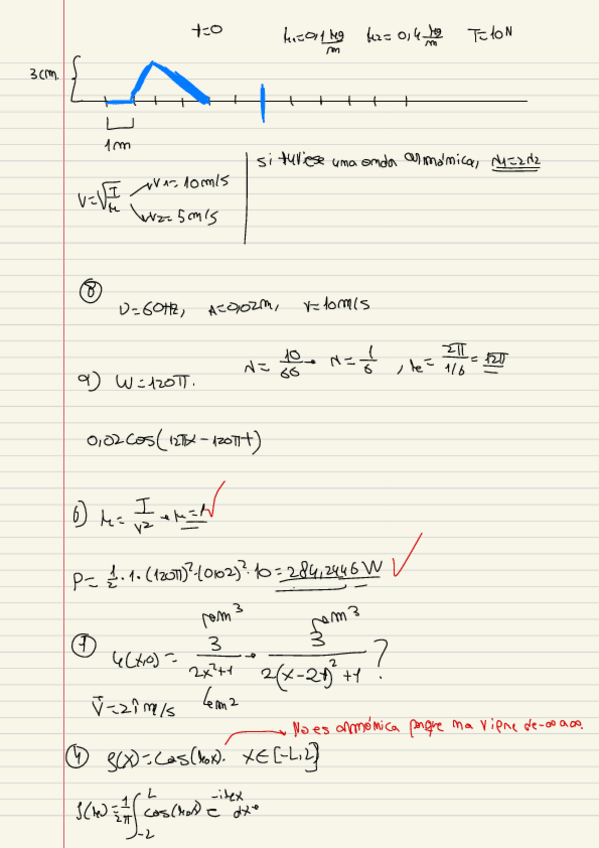 t=0 μ₁=0,1 kg/m μ₂=0,4 kg/m T=10N
3cm
1m
V=√(T/μ) V1=10m/s
V2=5m/s
si tuviese una onda armónica, λ1=2λ2
⑧ ν=60Hz, A=0,02m, V=10m/s
a) W=120π. λ=10/60 → λ=1/6, k=2π/(1/6)=12π
0,02cos(12πx-120πt)
b) μ=T/V² → μ=1
P=1/2·1·(120π)²·(0,02)²·10=284,2446W
⑦ Ψ(x,0)=3/(2x²+1) → 3/(2(x-2t)²+1)?
V=2î m/s
No es armónica porque no viene de -∞ a ∞.
④ f(x)=cos(k₀x). x∈[-L,L]
f(k)=1/2π ∫ cos(k₀x) e^-ikx dx